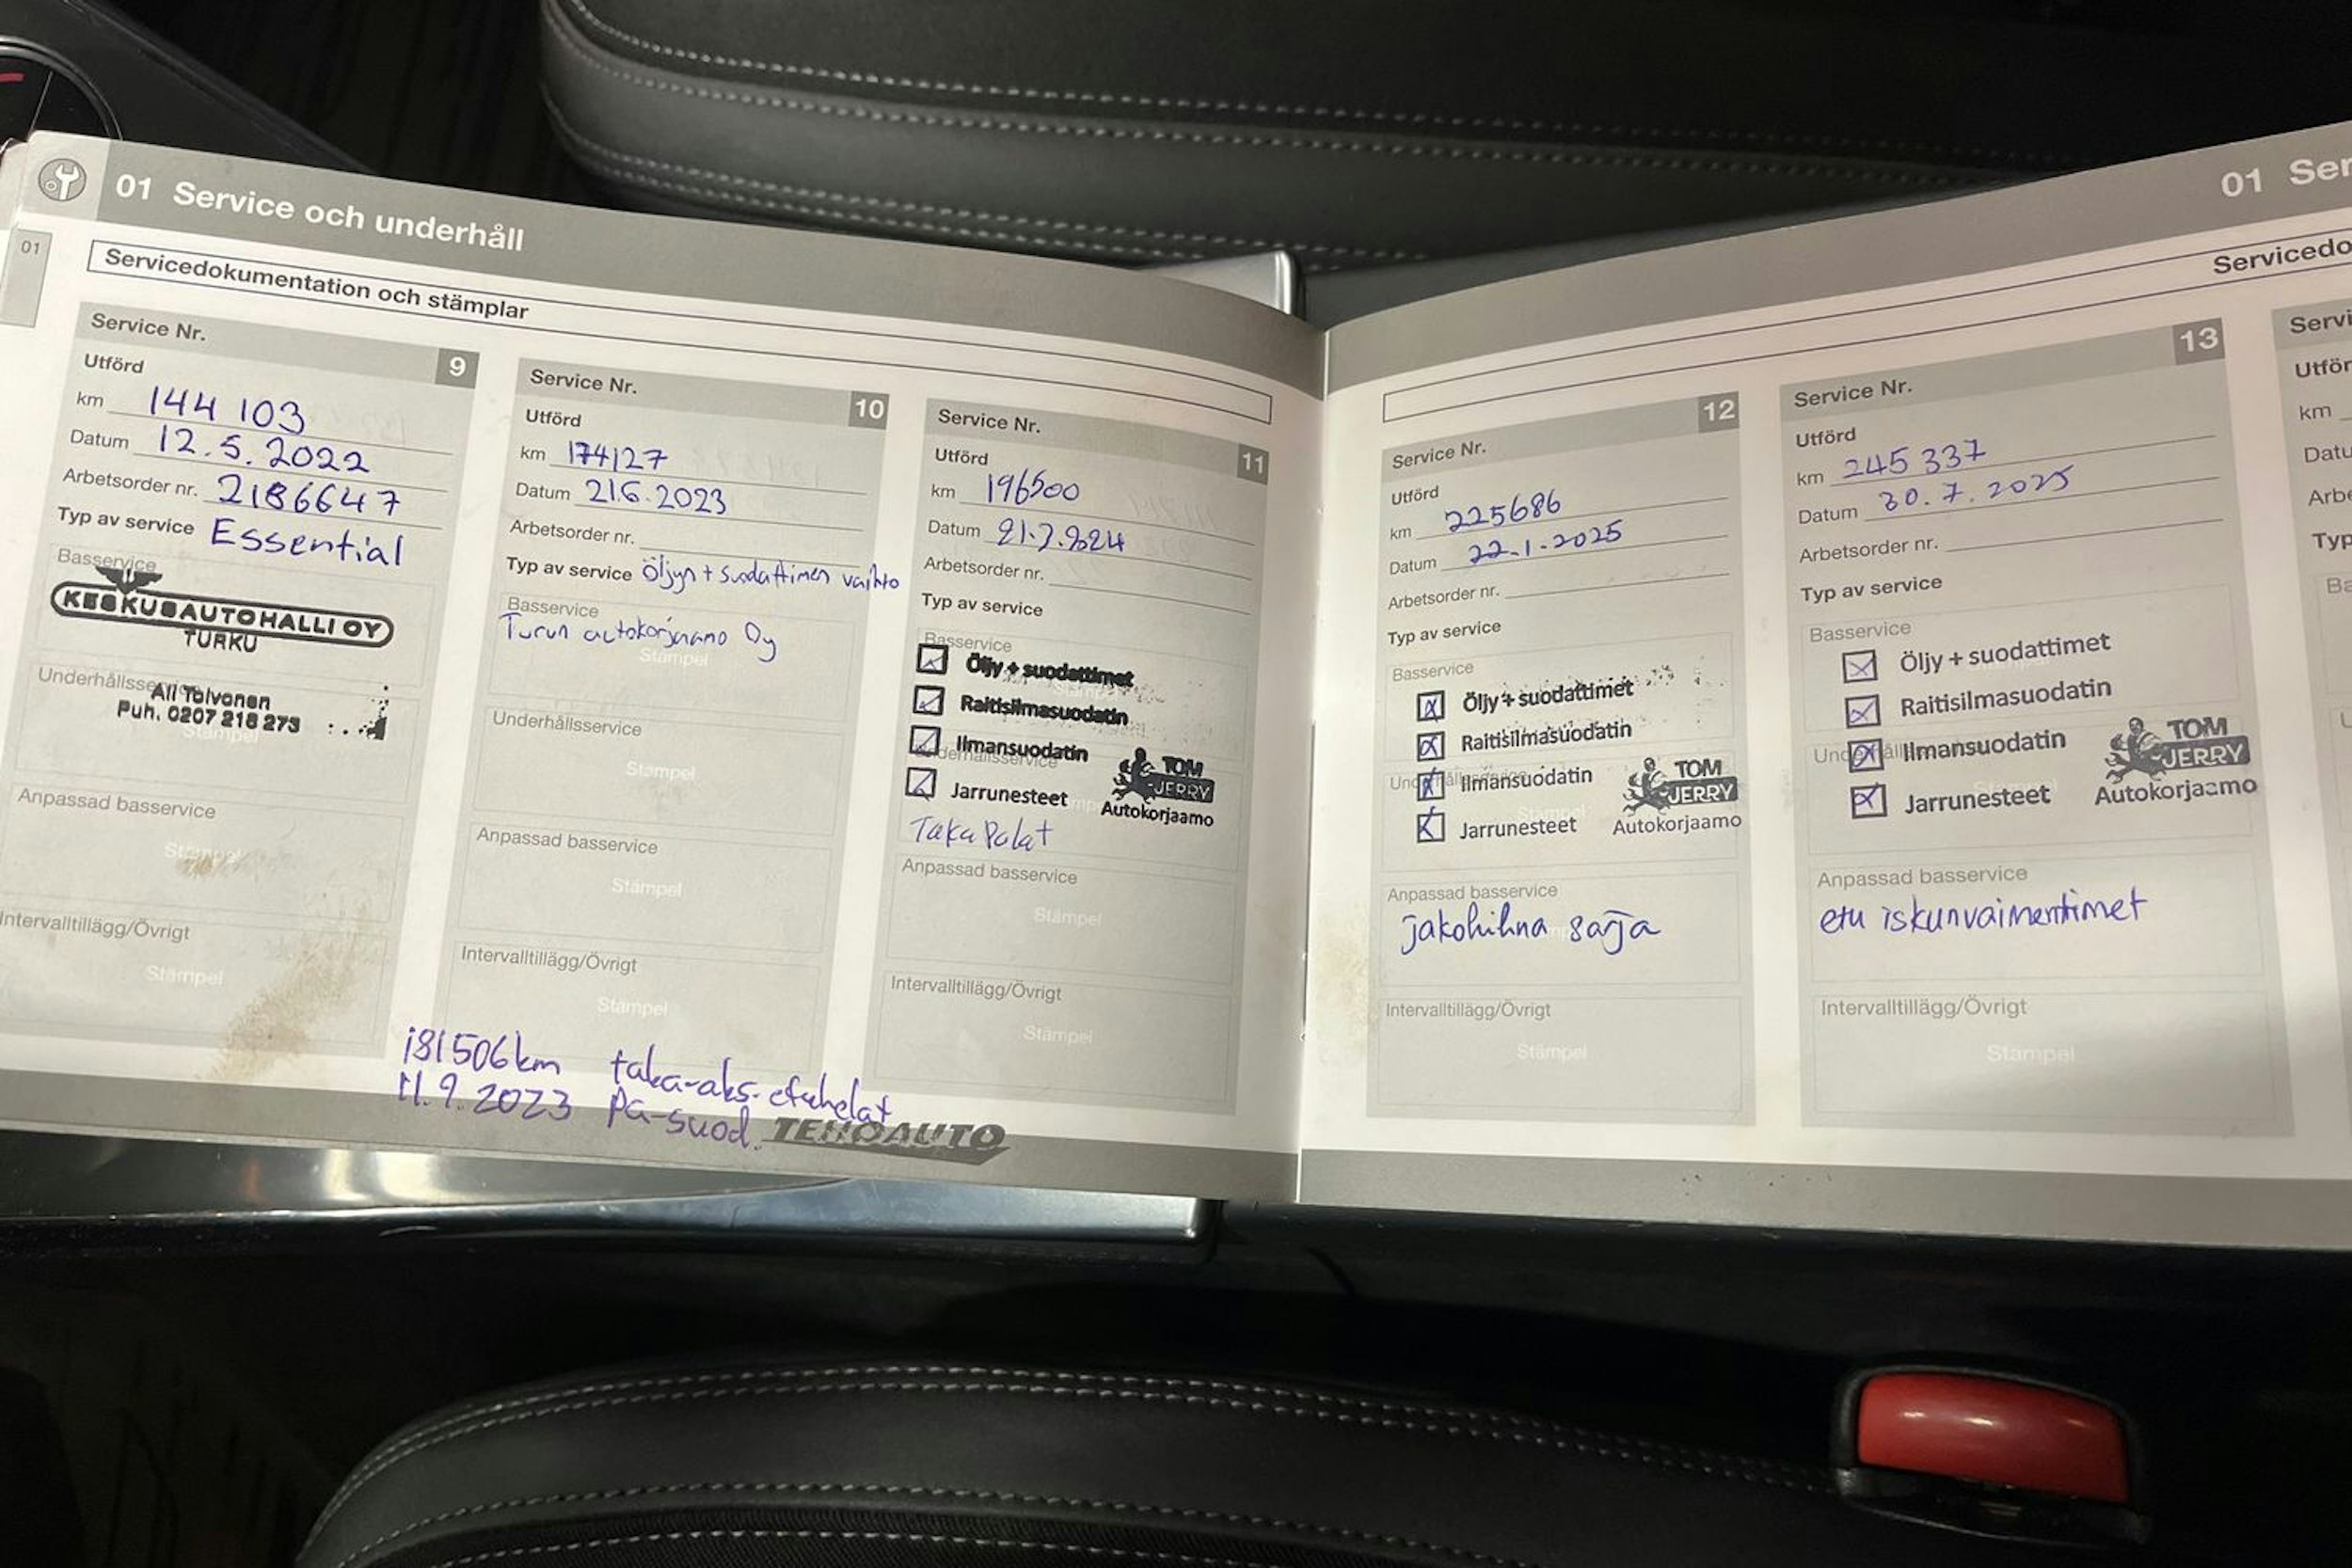 01 Service och underhåll
01
Servicedokumentation och stämplar
Service Nr. 9
Utförd
km 144 103
Datum 12.5.2022
Arbetsorder nr. 2186647
Typ av service Essential
Basservice
KESKUSAUTOHALLI OY
TURKU
Underhållsservice
Ali Talvonen
Puh. 0207 218 273
Stämpel
Anpassad basservice
Stämpel
Intervalltillägg/Övrigt
Stämpel
Service Nr. 10
Utförd
km 174127
Datum 21.6.2023
Arbetsorder nr.
Typ av service Öljyn + suodattimen vaihto
Basservice
Turun autokorjaamo Oy
Stämpel
Underhållsservice
Stämpel
Anpassad basservice
Stämpel
Intervalltillägg/Övrigt
Stämpel
181506km taka-aks. etuhelat
11.9.2023 Pa-suod. TEHOAUTO
Service Nr. 11
Utförd
km 196500
Datum 21.2.2024
Arbetsorder nr.
Typ av service
Basservice
Öljy + suodattimet
Raitisilmasuodatin
Ilmansuodatin
Underhållsservice
Jarrunesteet
TOM
JERRY
Autokorjaamo
Taka Palat
Anpassad basservice
Stämpel
Intervalltillägg/Övrigt
Stämpel
01 Ser
Servicedo
Service Nr. 12
Utförd
km 225686
Datum 22.1.2025
Arbetsorder nr.
Typ av service
Basservice
Öljy + suodattimet
Raitisilmasuodatin
Ilmansuodatin
Jarrunesteet
TOM
JERRY
Autokorjaamo
Anpassad basservice
jakohihna sarja
Intervalltillägg/Övrigt
Stämpel
Service Nr. 13
Utförd
km 245 337
Datum 30.7.2025
Arbetsorder nr.
Typ av service
Basservice
Öljy + suodattimet
Raitisilmasuodatin
Ilmansuodatin
Jarrunesteet
TOM
JERRY
Autokorjaamo
Anpassad basservice
etu iskunvaimentimet
Intervalltillägg/Övrigt
Stämpel
Servi
Utför
km
Datu
Arbe
Typ
Ba